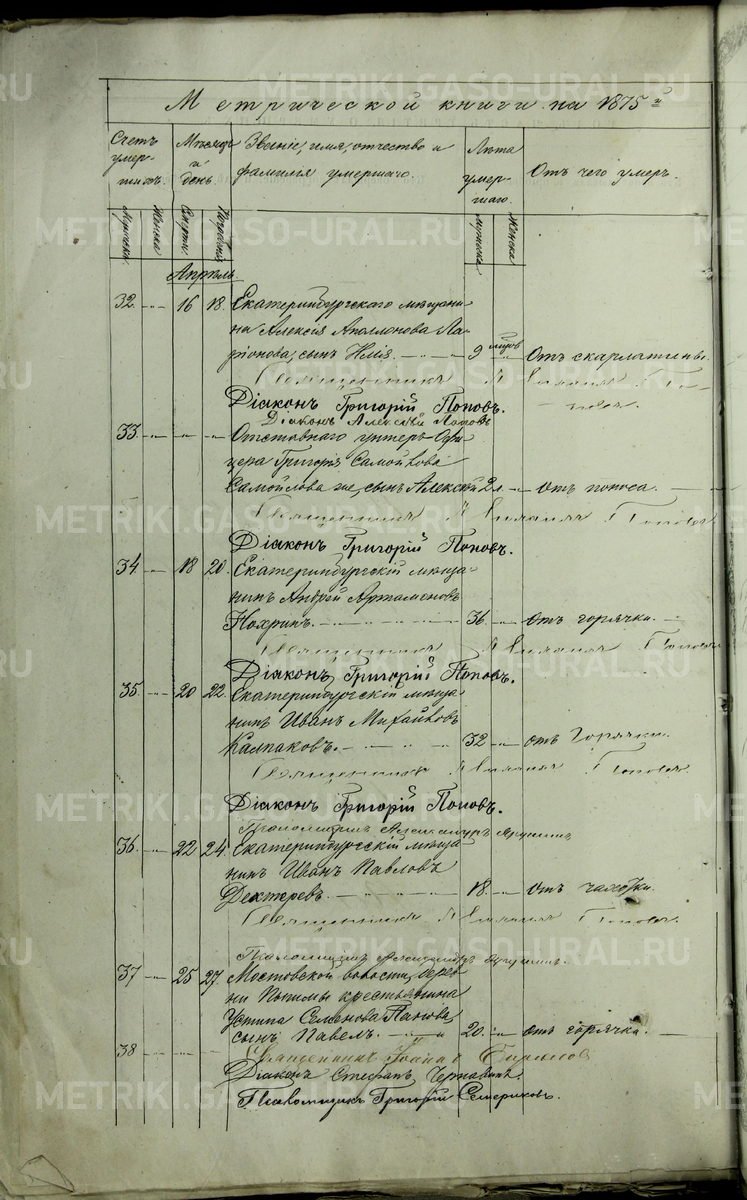 METRIKI.GASO-URAL.RU
Метрической книги на 1875й
Счетъ умершихъ.
Мѣсяцъ и день
Званіе, имя, отчество и фамилія умершаго.
Лѣта умершаго.
Отъ чего умеръ.
Мужска
Женска
Смерти
Погребенія
Мужска
Женска
Апрѣль.
32. 16 18. Екатеринбургскаго мѣщани-
на Алексія
ріонова, сынъ Илія. 9 мѣсяцъ Отъ скарлатины.
Священникъ По-
повъ.
Діаконъ Григорій Поповъ.
Діаконъ Алексѣй Поповъ
33. Отставнаго унтеръ-офи-
цера Григорія Самойлова
Самойлова же, сынъ Алексѣй 2 отъ поноса.
Священникъ Поповъ
Діаконъ Григорій Поповъ.
34 18 20. Екатеринбургскій мѣща-
нинъ Андрей Артамоновъ
Нохринъ. 36. отъ горячки.
Священникъ Поповъ
Діаконъ Григорій Поповъ.
35 20 22. Екатеринбургскій мѣща-
нинъ Иванъ Михайловъ
Калпаковъ. 32 отъ горячки.
Священникъ Поповъ
Діаконъ Григорій Поповъ.
Псаломщикъ Александръ
36. 22 24. Екатеринбургскій мѣща-
нинъ Иванъ Павловъ
Дехтеревъ. 18. отъ чахотки.
Священникъ Поповъ.
Псаломщикъ Александръ
37 25 27. Мостовской волости, дерев-
ни крестьянина
Устина Семенова Панова,
сынъ Павелъ. 20. отъ горячки.
38 Священникъ Іоаннъ
Діаконъ Стефанъ
Псаломщикъ Григорій Семериковъ.